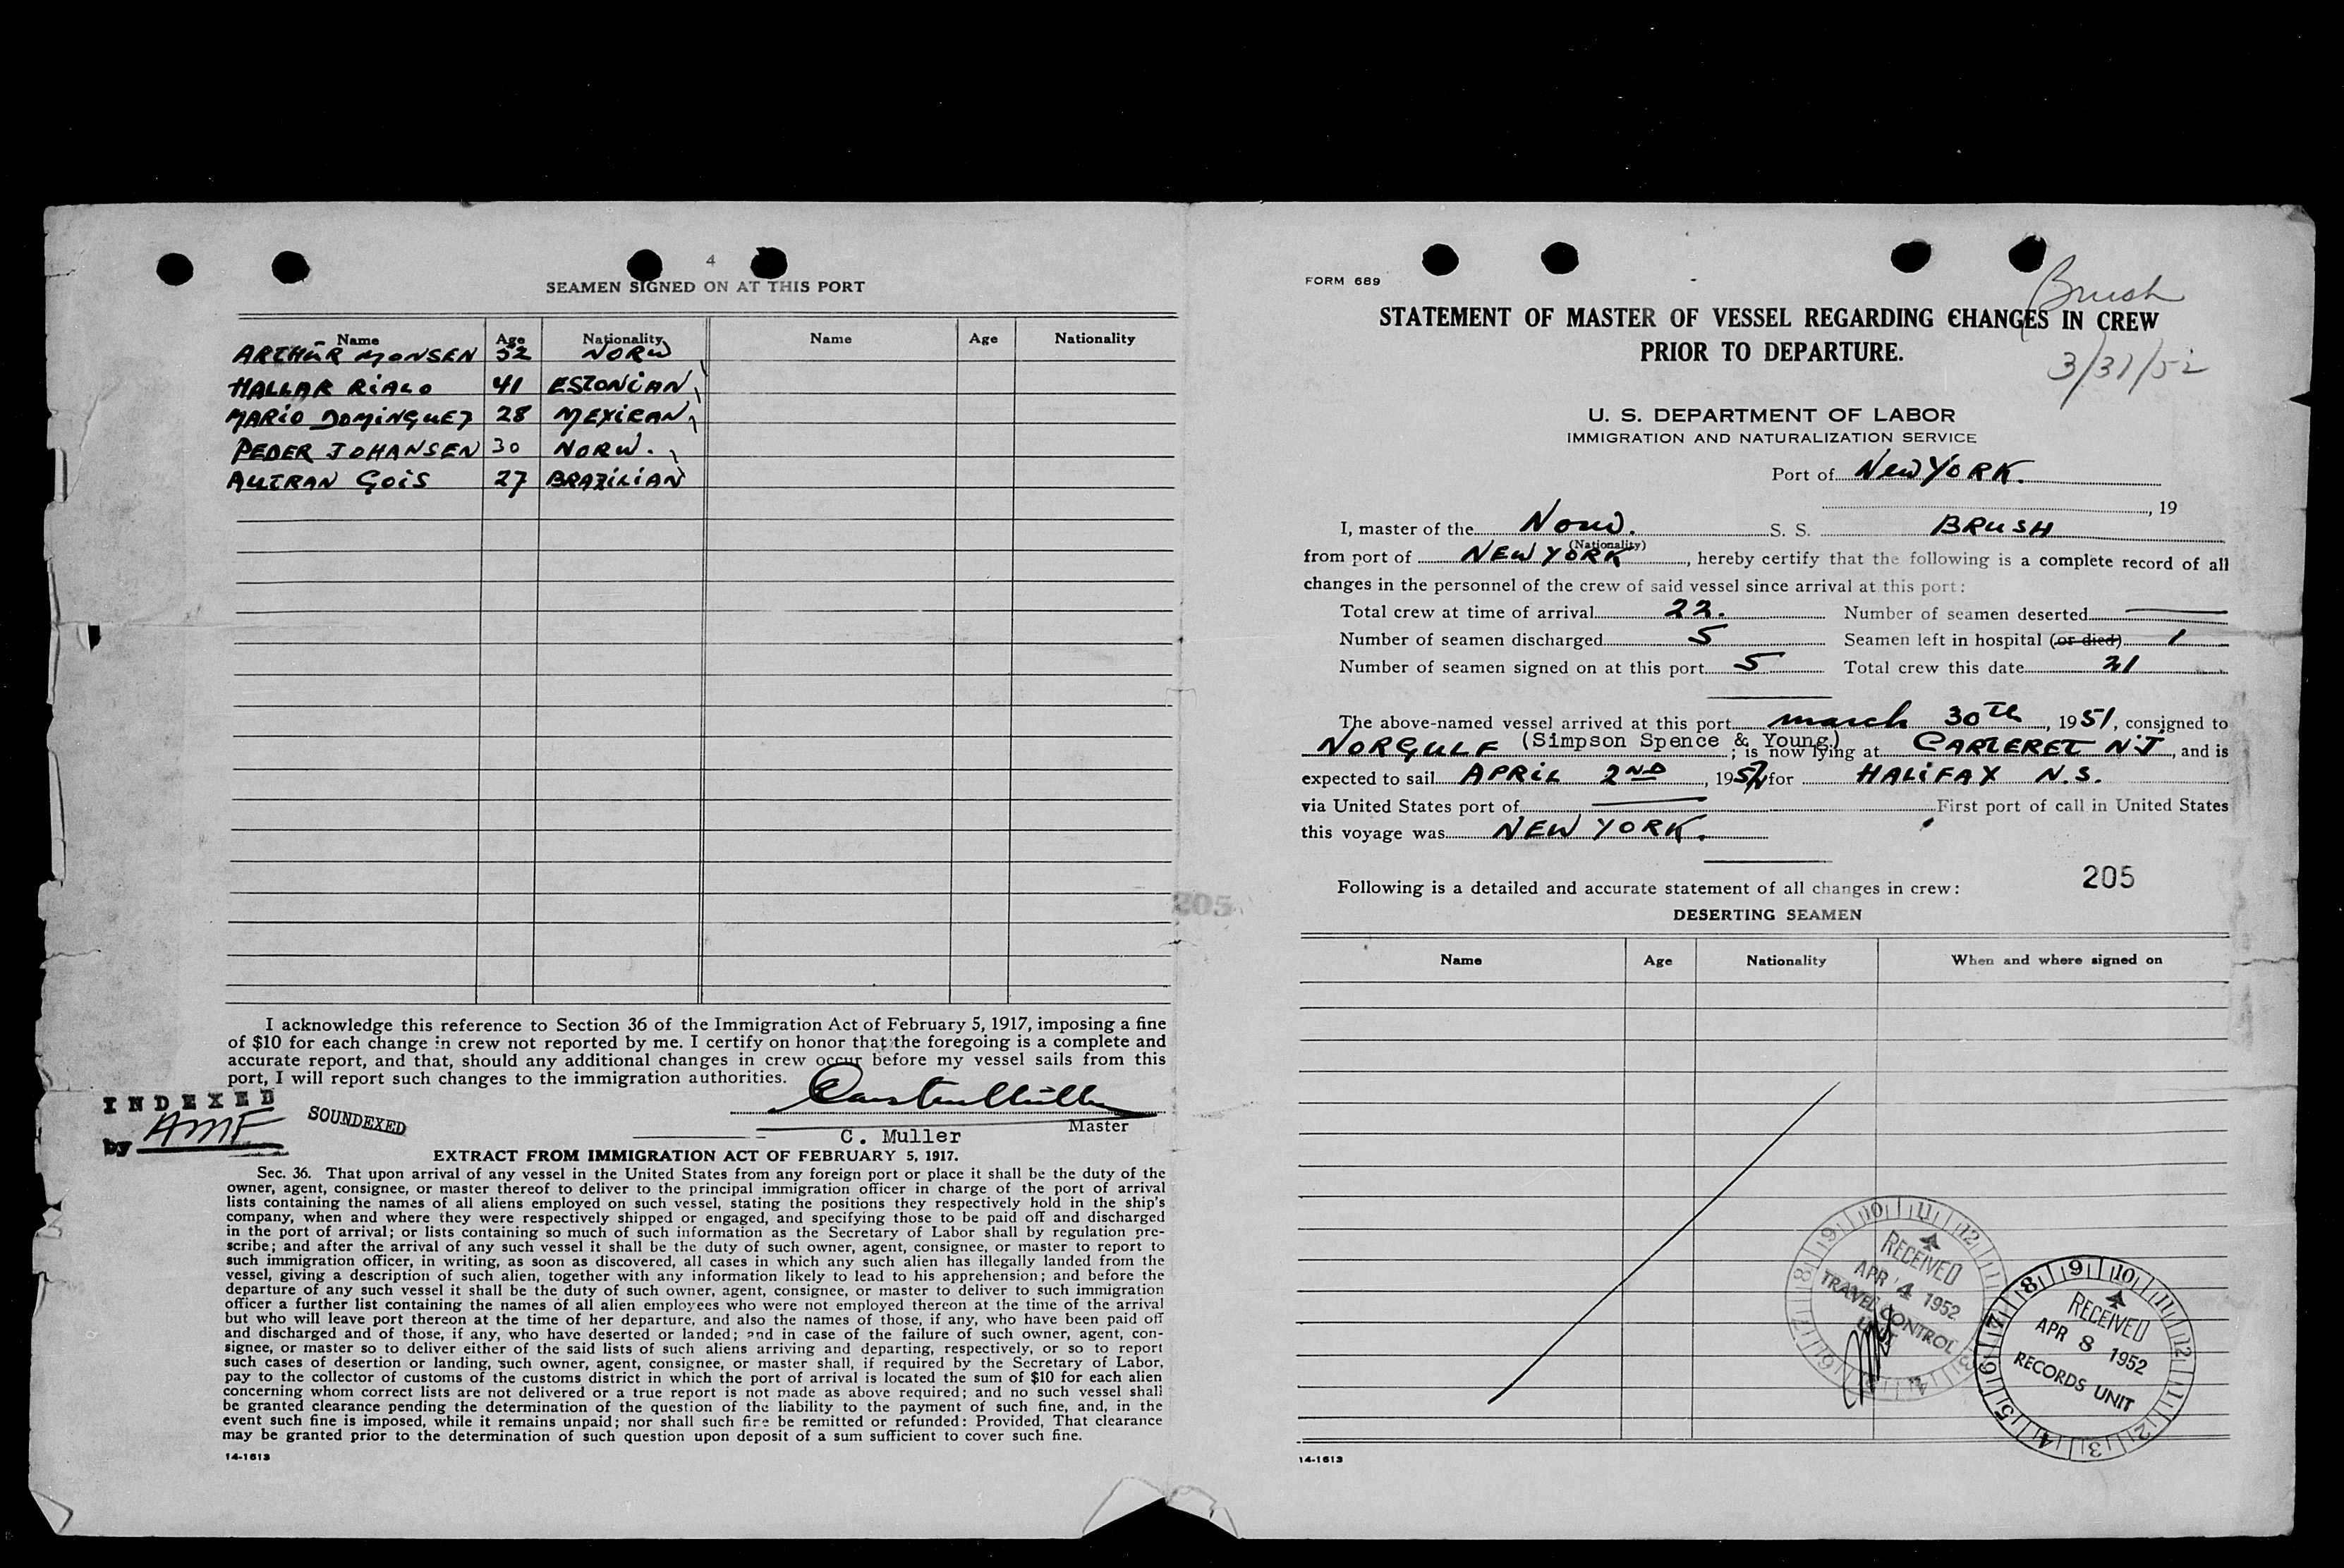 4
SEAMEN SIGNED ON AT THIS PORT
Name Age Nationality Name Age Nationality
ARTHUR MONSEN 52 NORW
HALLAR RIALO 41 ESTONIAN
MARIO DOMINGUEZ 28 MEXICAN
PEDER JOHANSEN 30 NORW.
AUTRAN GOIS 27 BRAZILIAN
I acknowledge this reference to Section 36 of the Immigration Act of February 5, 1917, imposing a fine
of $10 for each change in crew not reported by me. I certify on honor that the foregoing is a complete and
accurate report, and that, should any additional changes in crew occur before my vessel sails from this
port, I will report such changes to the immigration authorities.
INDEXED
by AMF
SOUNDEXED
Carsten Müller
Master
C. Muller
EXTRACT FROM IMMIGRATION ACT OF FEBRUARY 5, 1917.
Sec. 36. That upon arrival of any vessel in the United States from any foreign port or place it shall be the duty of the
owner, agent, consignee, or master thereof to deliver to the principal immigration officer in charge of the port of arrival
lists containing the names of all aliens employed on such vessel, stating the positions they respectively hold in the ship's
company, when and where they were respectively shipped or engaged, and specifying those to be paid off and discharged
in the port of arrival; or lists containing so much of such information as the Secretary of Labor shall by regulation pre-
scribe; and after the arrival of any such vessel it shall be the duty of such owner, agent, consignee, or master to report to
such immigration officer, in writing, as soon as discovered, all cases in which any such alien has illegally landed from the
vessel, giving a description of such alien, together with any information likely to lead to his apprehension; and before the
departure of any such vessel it shall be the duty of such owner, agent, consignee, or master to deliver to such immigration
officer a further list containing the names of all alien employees who were not employed thereon at the time of the arrival
but who will leave port thereon at the time of her departure, and also the names of those, if any, who have been paid off
and discharged and of those, if any, who have deserted or landed; and in case of the failure of such owner, agent, con-
signee, or master so to deliver either of the said lists of such aliens arriving and departing, respectively, or so to report
such cases of desertion or landing, such owner, agent, consignee, or master shall, if required by the Secretary of Labor,
pay to the collector of customs of the customs district in which the port of arrival is located the sum of $10 for each alien
concerning whom correct lists are not delivered or a true report is not made as above required; and no such vessel shall
be granted clearance pending the determination of the question of the liability to the payment of such fine, and, in the
event such fine is imposed, while it remains unpaid; nor shall such fine be remitted or refunded: Provided, That clearance
may be granted prior to the determination of such question upon deposit of a sum sufficient to cover such fine.
14-1613
205
FORM 689
Brush
STATEMENT OF MASTER OF VESSEL REGARDING CHANGES IN CREW
PRIOR TO DEPARTURE.
3/31/52
U. S. DEPARTMENT OF LABOR
IMMIGRATION AND NATURALIZATION SERVICE
Port of NEW YORK.
, 19
I, master of the Norw. S. S. BRUSH
(Nationality)
from port of NEW YORK, hereby certify that the following is a complete record of all
changes in the personnel of the crew of said vessel since arrival at this port:
Total crew at time of arrival 22. Number of seamen deserted —
Number of seamen discharged 5 Seamen left in hospital (or died) 1
Number of seamen signed on at this port 5 Total crew this date 21
The above-named vessel arrived at this port march 30th, 1951, consigned to
NORGULF (Simpson Spence & Young); is now lying at CARTERET N.J, and is
expected to sail APRIL 2ND, 1952 for HALIFAX N.S.
via United States port of — First port of call in United States
this voyage was NEW YORK.
205
Following is a detailed and accurate statement of all changes in crew:
DESERTING SEAMEN
Name Age Nationality When and where signed on
RECEIVED
APR 4 1952
TRAVEL CONTROL
UNIT
RECEIVED
APR 8 1952
RECORDS UNIT
14-1613